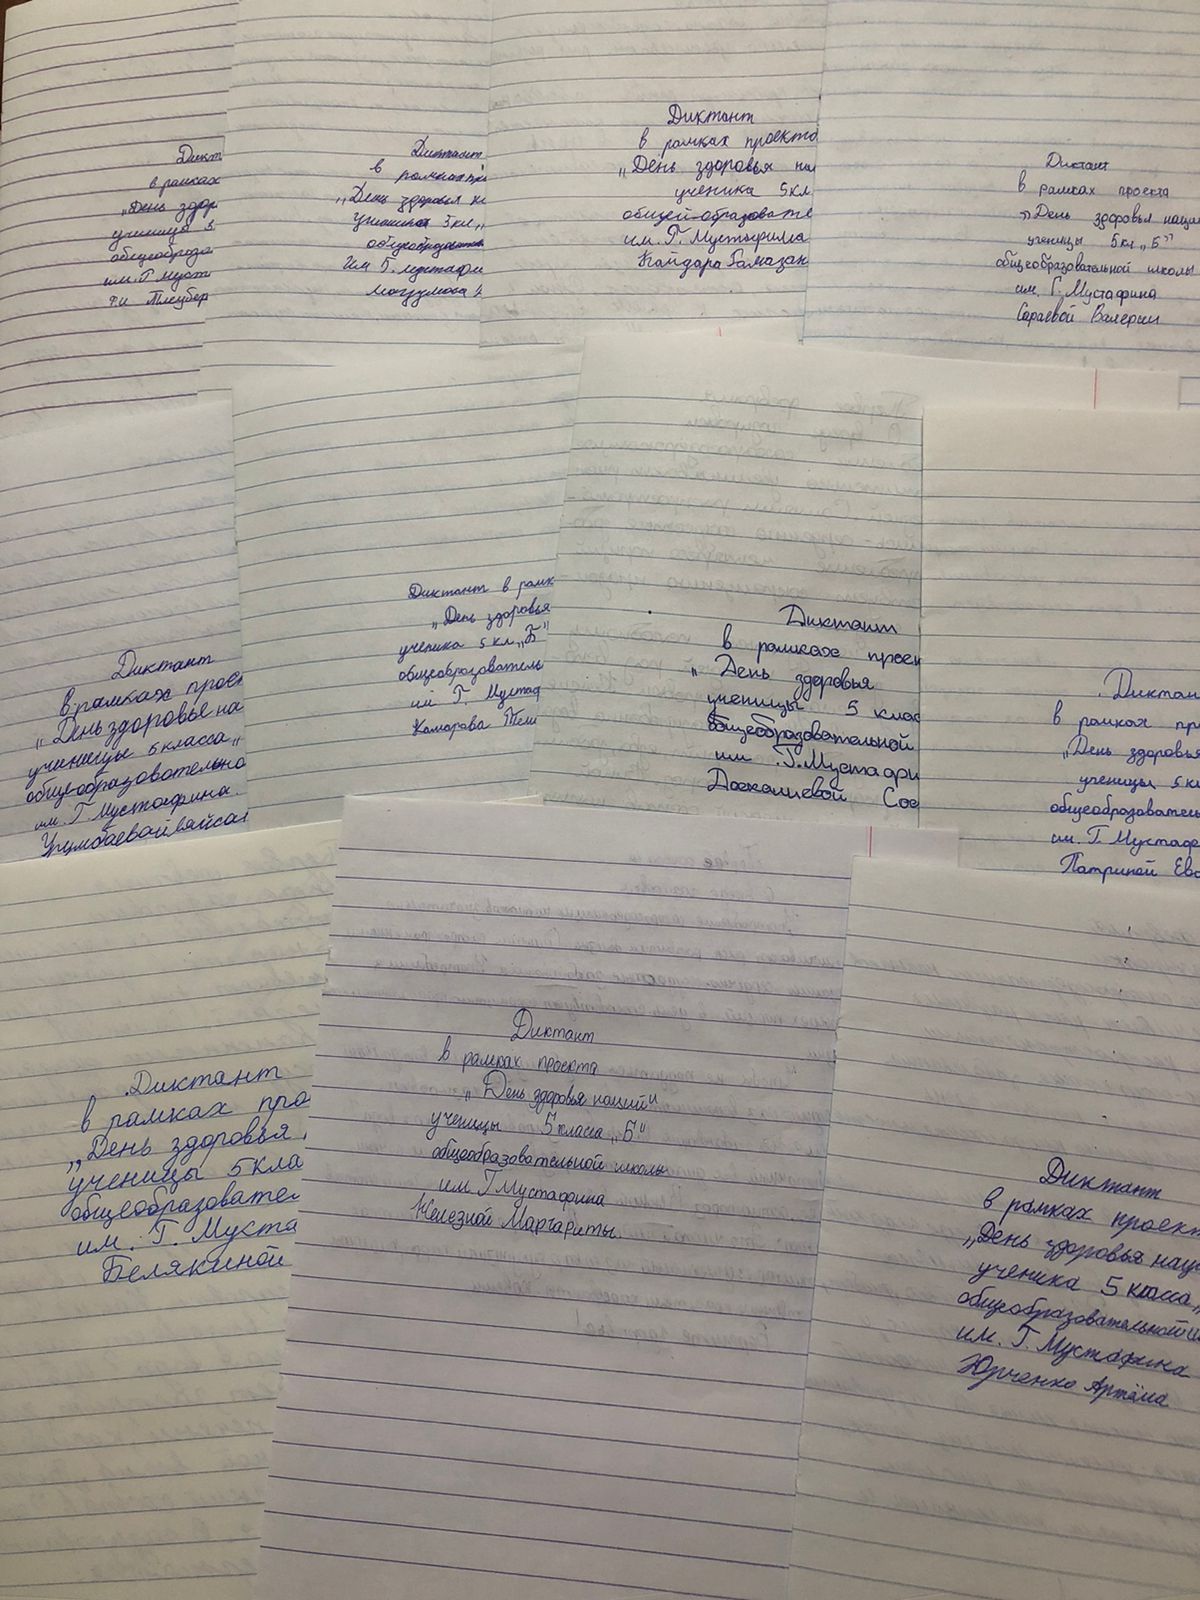 Дикт
в рамках
„День здор
ученицы 5
общеобразо
им. Г Муст
Диктант
в рамках пр
„День здоровья на
5 кл „
общеобразовате
им Г. Мустафи
Диктант
в рамках проекта
„День здоровья на
ученика 5 кл
общей-образовате
им. Г. Мустафина
Кайдара Рамазан
Диктант
в рамках проекта
„День здоровья наци
ученицы 5 кл „Б"
общеобразовательной школы
им. Г. Мустафина
Сараевой Валерии
Диктант
в рамках проек
„День здоровье на
ученицы 5 класса „
общеобразовательно
им. Г. Мустафина.
Диктант в рамк
„День здоровья
ученика 5 кл „Б"
общеобразователь
им Г. Мустаф
Комарова
Диктант
в рамках проек
„День здоровья
ученицы 5 клас
общеобразовательной
им. Г. Мустафи
Досколиевой Сое
Диктан
в рамках пр
„День здоровья
ученицы 5 кл
общеобразователь
им. Г. Мустаф
Патриной Ева
Диктант
в рамках про
„День здоровья
ученицы 5 кла
общеобразовате
им. Г. Муста
Белякиной
Диктант
в рамках проекта
„День здоровья наций"
ученицы 5 класса „Б"
общеобразовательной школы
им Г Мустафина
Железной Маргариты.
Диктант
в рамках проект
„День здоровья наци
ученика 5 класса „
общеобразовательной ш
им. Г. Мустафина
Юрченко Артёма